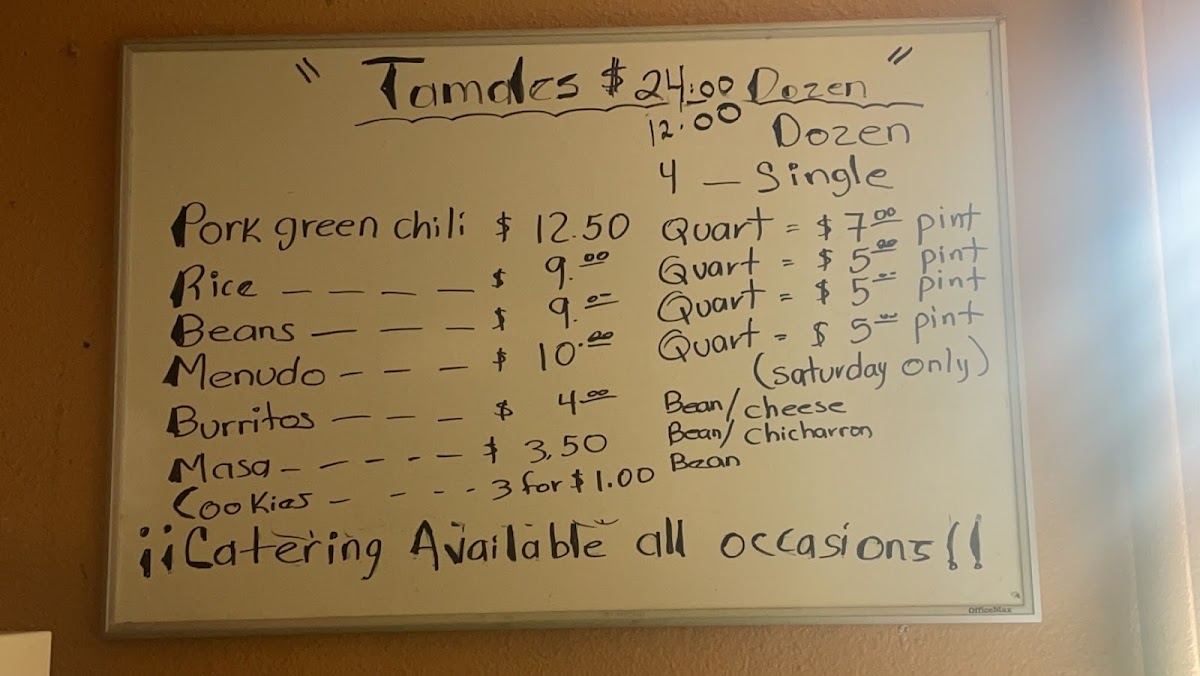 " Tamales $24.00 Dozen "
12.00 Dozen
4 — Single
Pork green chili $ 12.50 Quart = $ 7.00 pint
Rice — — — — $ 9.00 Quart = $ 5.00 pint
Beans — — — — $ 9.00 Quart = $ 5.00 pint
Menudo — — — $ 10.00 Quart = $ 5.00 pint
(saturday only)
Burritos — — — $ 4.00 Bean/cheese
Bean/chicharron
Bean
Masa — — — — — $ 3.50
Cookies — — — — 3 for $1.00
¡¡Catering Available all occasions!!
OfficeMax